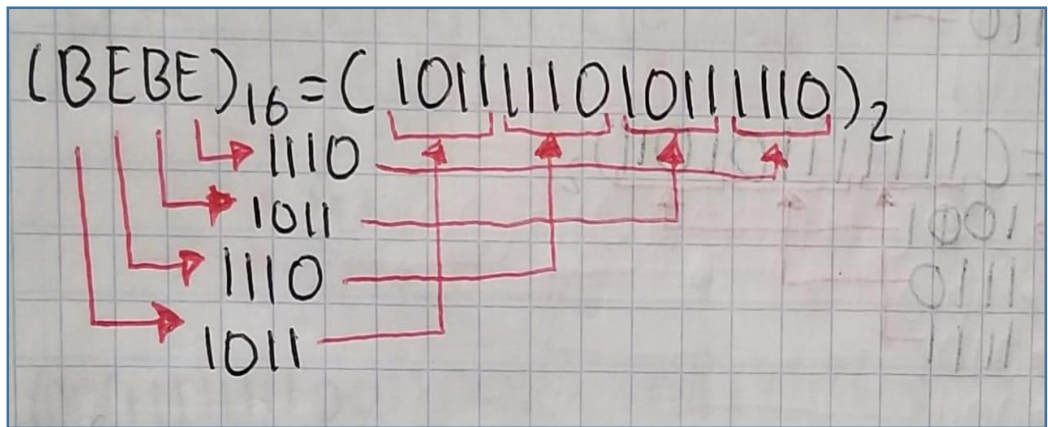 (BEBE)₁₆=(1011111010111110)₂
1110
1011
1110
1011